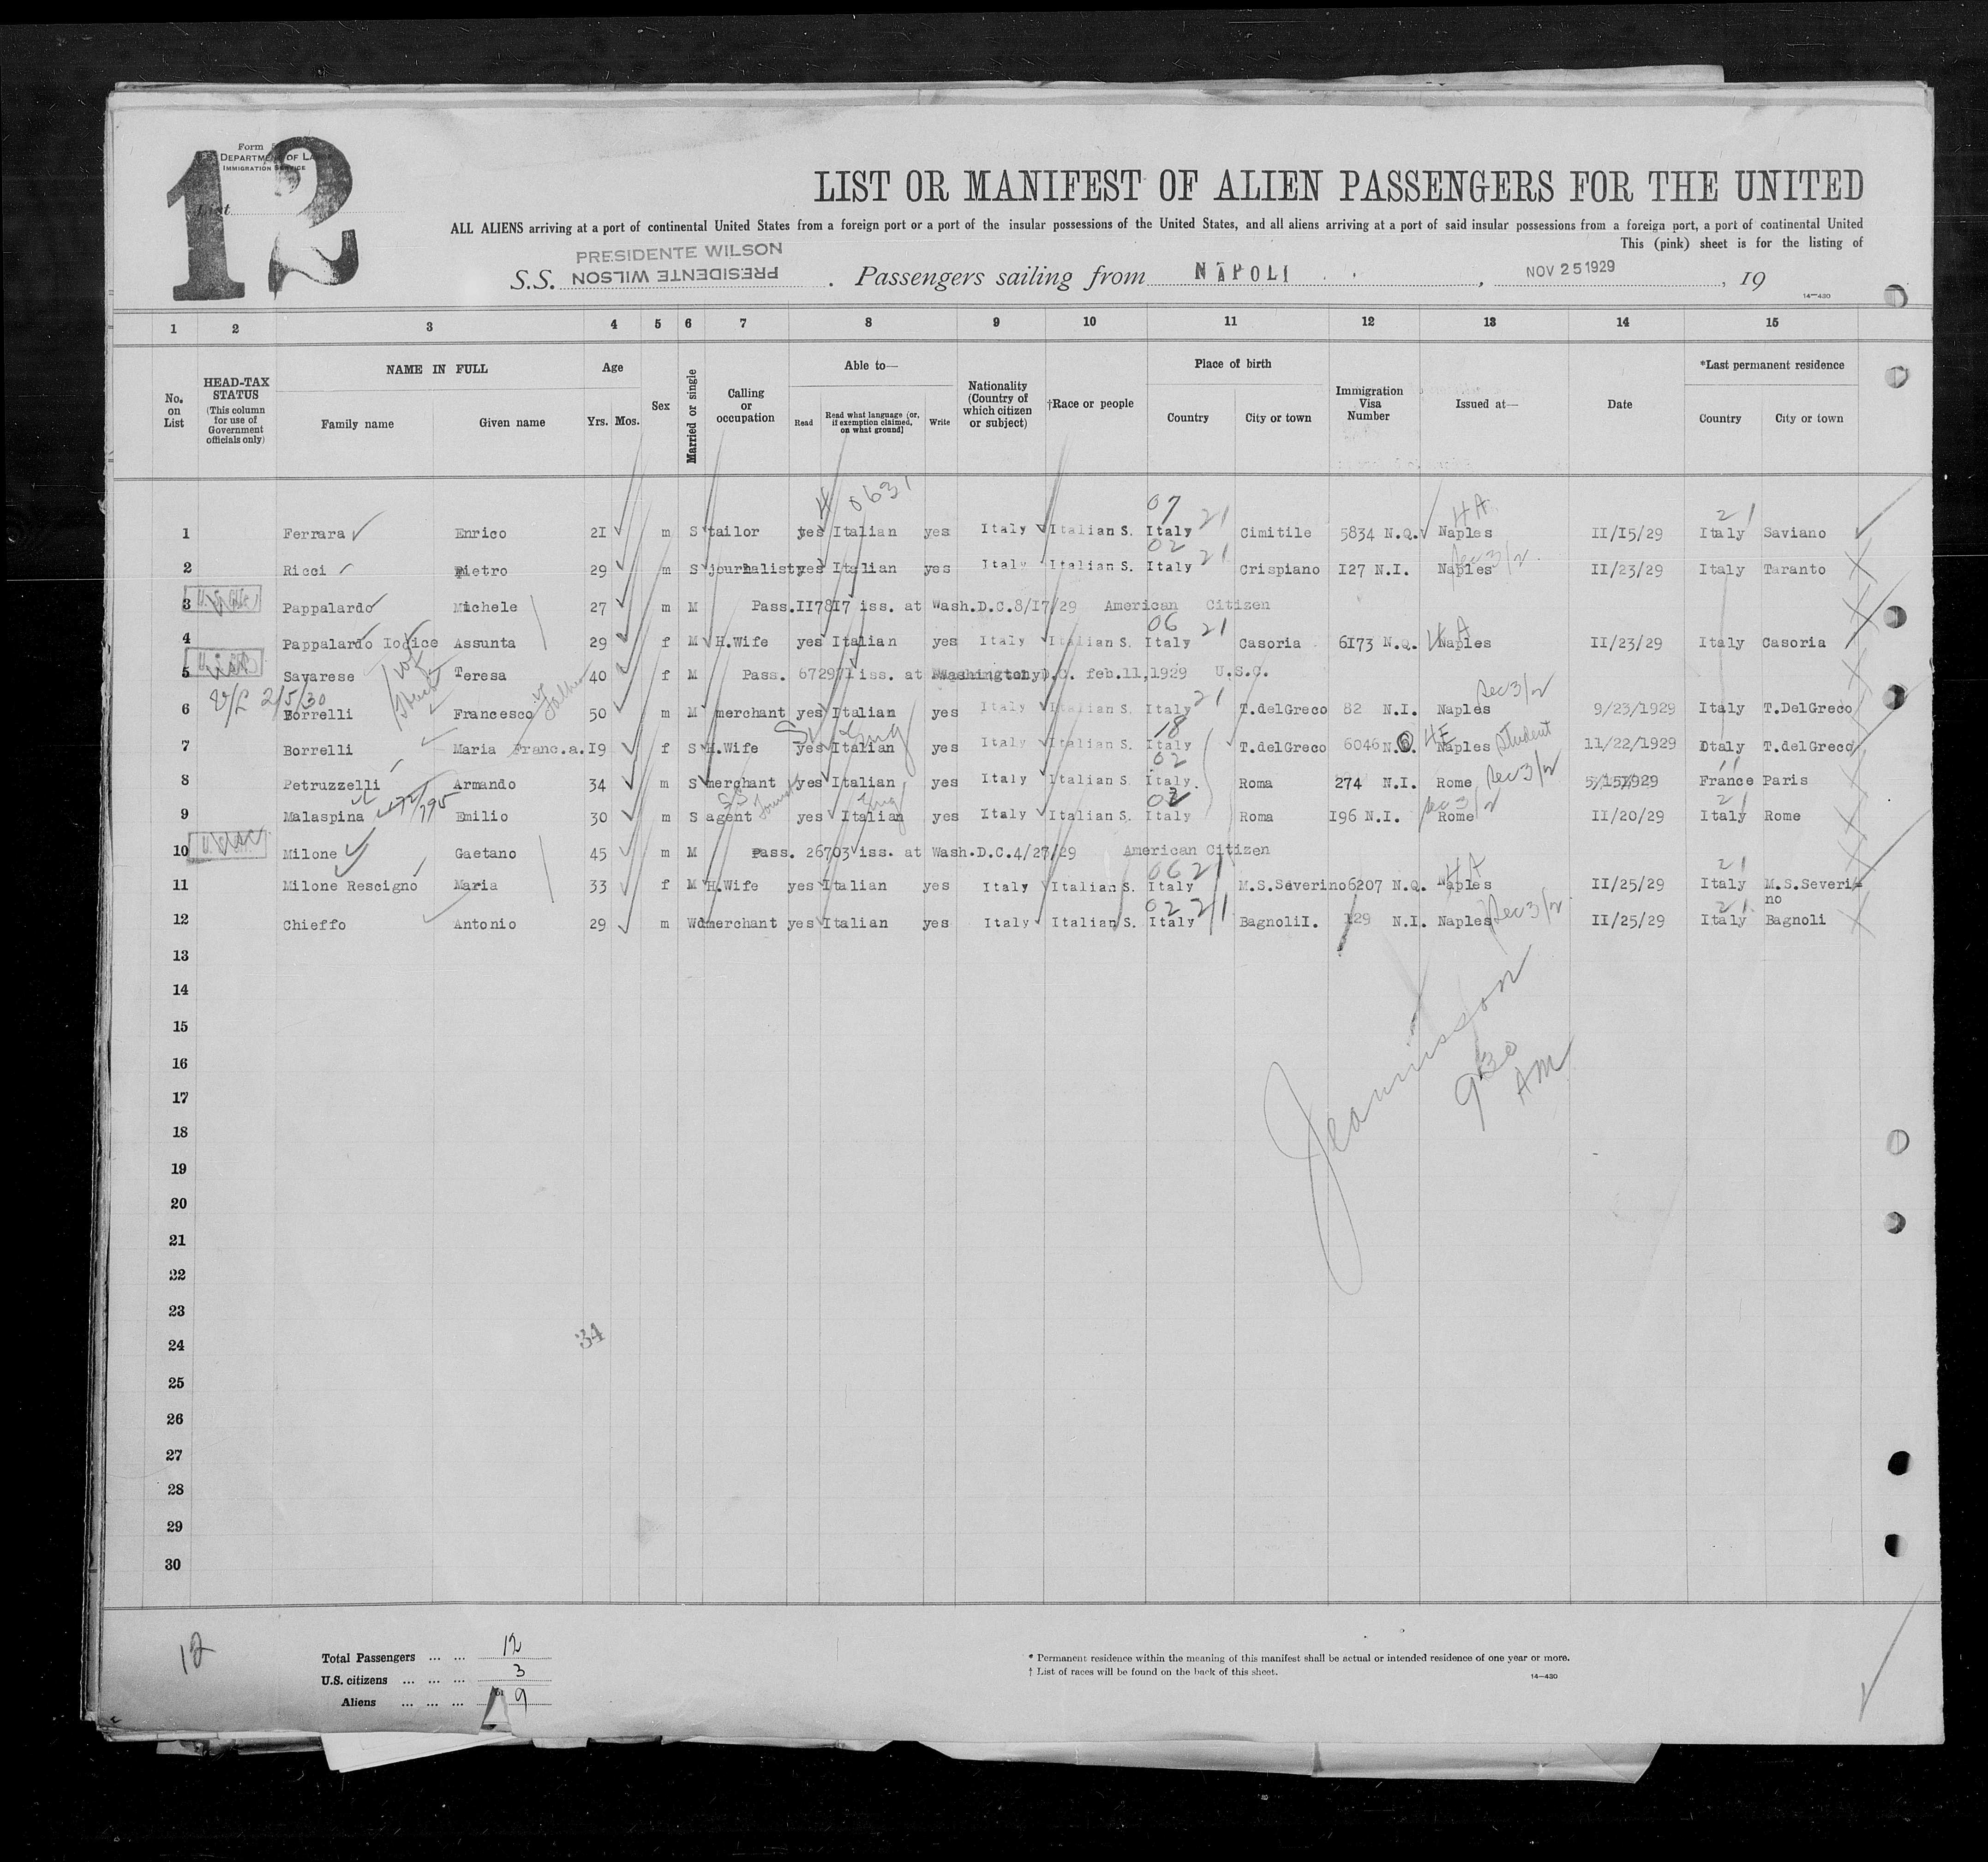 12
Form
DEPARTMENT OF LABOR
IMMIGRATION SERVICE
List
LIST OR MANIFEST OF ALIEN PASSENGERS FOR THE UNITED
ALL ALIENS arriving at a port of continental United States from a foreign port or a port of the insular possessions of the United States, and all aliens arriving at a port of said insular possessions from a foreign port, a port of continental United
This (pink) sheet is for the listing of
PRESIDENTE WILSON
S.S. PRESIDENTE WILSON. Passengers sailing from NAPOLI, NOV 25 1929, 19
14-430
1 2 3 4 5 6 7 8 9 10 11 12 13 14 15
No. on List HEAD-TAX STATUS (This column for use of Government officials only) NAME IN FULL Family name Given name Age Yrs. Mos. Sex Married or single Calling or occupation Able to— Read Read what language [or, if exemption claimed, on what ground] Write Nationality (Country of which citizen or subject) †Race or people Place of birth Country City or town Immigration Visa Number Issued at— Date *Last permanent residence Country City or town
0631
07 21 4A 21
1 Ferrara Enrico 2I m S tailor yes Italian yes Italy Italian S. Italy Cimitile 5834 N.Q. Naples II/I5/29 Italy Saviano
02 21 Sec 3/2
2 Ricci Pietro 29 m S journalist yes Italian yes Italy Italian S. Italy Crispiano I27 N.I. Naples II/23/29 Italy Taranto
3 Pappalardo Michele 27 m M Pass.II78I7 iss. at Wash.D.C.8/I7/29 American Citizen
06 21 4A
4 Pappalardo Iodice Assunta 29 f M H.Wife yes Italian yes Italy Italian S. Italy Casoria 6I73 N.Q. Naples II/23/29 Italy Casoria
5 Savarese Teresa 40 f M Pass. 672971 iss. at Washington D.C. feb.11,1929 U.S.C.
2/5/30 Father 21 Sec 3/2
6 Borrelli Francesco 50 m M merchant yes Italian yes Italy Italian S. Italy T.delGreco 82 N.I. Naples 9/23/1929 Italy T.DelGreco
Eng 18 4E Student
7 Borrelli Maria Franc.a. I9 f S H.Wife yes Italian yes Italy Italian S. Italy T.delGreco 6046 N.Q. Naples 11/22/1929 Italy T.delGreco
02 Sec 3/2
8 Petruzzelli Armando 34 m S merchant yes Italian yes Italy Italian S. Italy. Roma 274 N.I. Rome 5/15/1929 France Paris
Eng 02 Sec 3/2 21
9 Malaspina Emilio 30 m S agent yes Italian yes Italy Italian S. Italy Roma I96 N.I. Rome II/20/29 Italy Rome
10 Milone Gaetano 45 m M Pass. 26703 iss. at Wash.D.C.4/27/29 American Citizen
06 21 4A 21
11 Milone Rescigno Maria 33 f M H.Wife yes Italian yes Italy Italian S. Italy M.S.Severino 6207 N.Q. Naples II/25/29 Italy M.S.Severi=
no
02 21 Sec 3/2 21
12 Chieffo Antonio 29 m Wd merchant yes Italian yes Italy Italian S. Italy BagnoliI. 129 N.I. Naples II/25/29 Italy Bagnoli
13
14
15
16
930
AM
17
18
19
20
21
22
23
24 34
25
26
27
28
29
30
12
Total Passengers ... ... 12
U.S. citizens ... ... ... 3
Aliens ... ... ... 9
* Permanent residence within the meaning of this manifest shall be actual or intended residence of one year or more.
† List of races will be found on the back of this sheet.
14-430